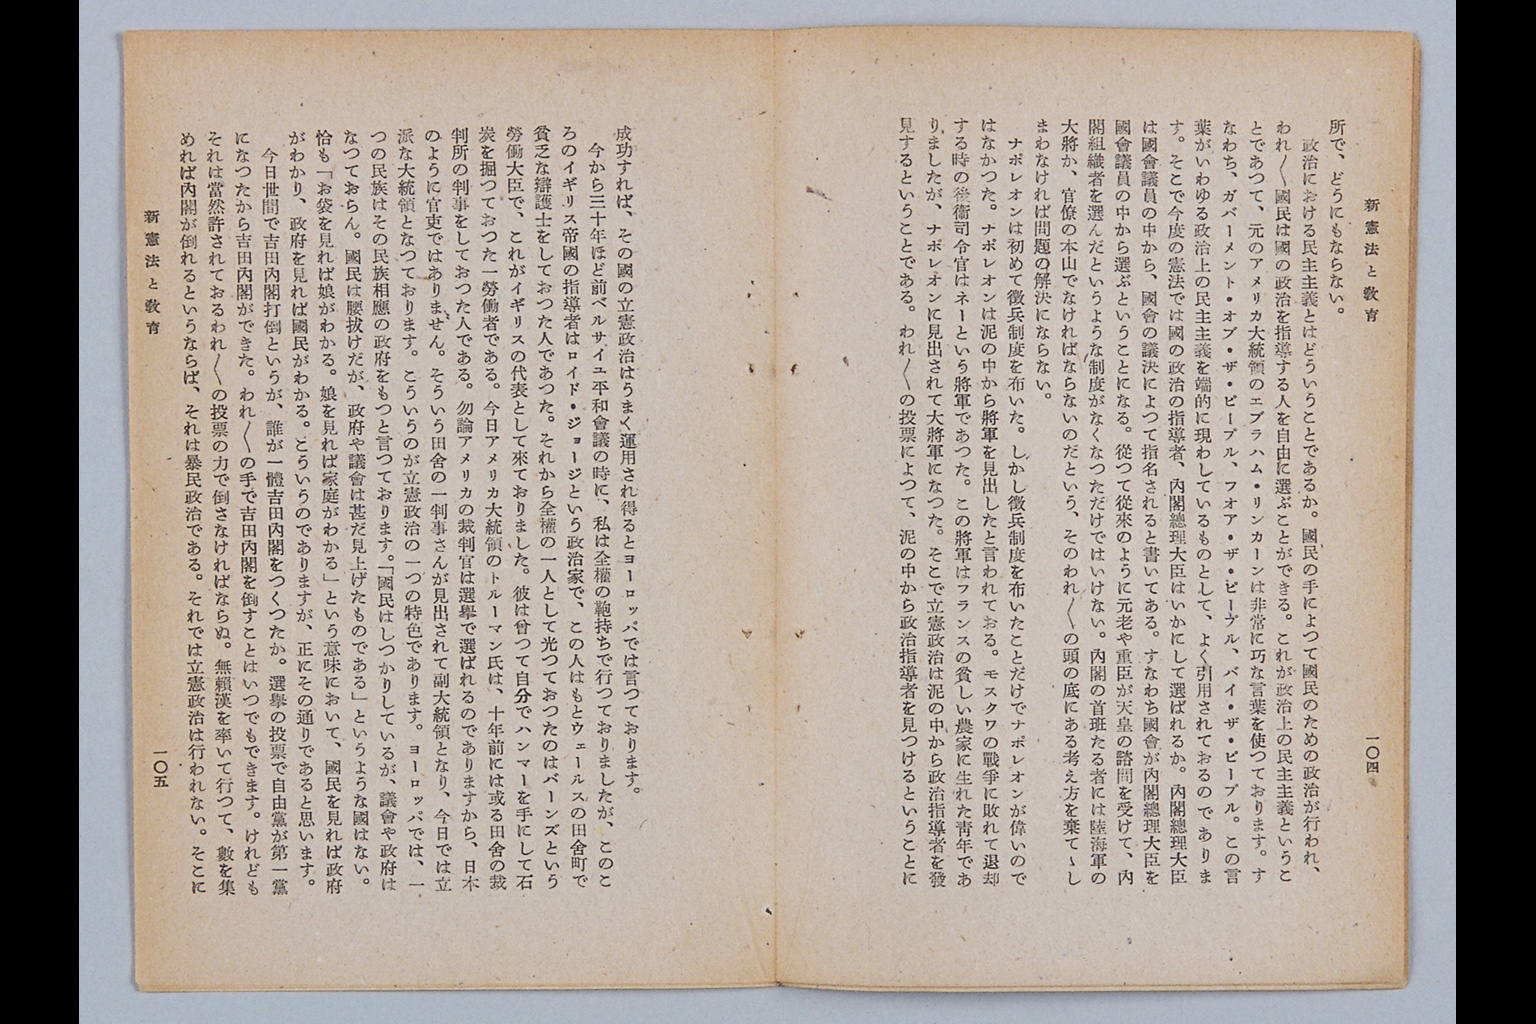 新憲法と敎育
一〇四
所で、どうにもならない。
政治における民主主義とはどういうことであるか。國民の手によつて國民のための政治が行われ、
われ〱國民は國の政治を指導する人を自由に選ぶことができる。これが政治上の民主主義というこ
とであつて、元のアメリカ大統領のエブラハム・リンカーンは非常に巧な言葉を使つております。す
なわち、ガバーメント・オブ・ザ・ピープル、フオア・ザ・ピープル、バイ・ザ・ピープル。この言
葉がいわゆる政治上の民主主義を端的に現わしているものとして、よく引用されておるのでありま
す。そこで今度の憲法では國の政治の指導者、內閣總理大臣はいかにして選ばれるか。內閣總理大臣
は國會議員の中から、國會の議決によつて指名されると書いてある。すなわち國會が內閣總理大臣を
國會議員の中から選ぶということになる。從つて從來のように元老や重臣が天皇の諮問を受けて、內
閣組織者を選んだというような制度がなくなつただけではいけない。內閣の首班たる者には陸海軍の
大將か、官僚の本山でなければならないのだという、そのわれ〱の頭の底にある考え方を棄てゝし
まわなければ問題の解決にならない。
ナポレオンは初めて徵兵制度を布いた。しかし徵兵制度を布いたことだけでナポレオンが偉いので
はなかつた。ナポレオンは泥の中から將軍を見出したと言われておる。モスクワの戰爭に敗れて退却
する時の後衞司令官はネーという將軍であつた。この將軍はフランスの貧しい農家に生れた靑年であ
りましたが、ナポレオンに見出されて大將軍になつた。そこで立憲政治は泥の中から政治指導者を發
見するということである。われ〱の投票によつて、泥の中から政治指導者を見つけるということに
成功すれば、その國の立憲政治はうまく運用され得るとヨーロッパでは言つております。
今から三十年ほど前ベルサイユ平和會議の時に、私は全權の鞄持ちで行つておりましたが、このこ
ろのイギリス帝國の指導者はロイド・ジョージという政治家で、この人はもとウェールスの田舍町で
貧乏な辯護士をしておつた人であつた。それから全權の一人として光つておつたのはバーンズという
勞働大臣で、これがイギリスの代表として來ておりました。彼は曾つて自分でハンマーを手にして石
炭を掘つておつた一勞働者である。今日アメリカ大統領のトルーマン氏は、十年前には或る田舍の裁
判所の判事をしておつた人である。勿論アメリカの裁判官は選擧で選ばれるのでありますから、日本
のように官吏ではありません。そういう田舍の一判事さんが見出されて副大統領となり、今日では立
派な大統領となつております。こういうのが立憲政治の一つの特色であります。ヨーロッパでは、一
つの民族はその民族相應の政府をもつと言つております。「國民はしつかりしているが、議會や政府は
なつておらん。國民は腰拔けだが、政府や議會は甚だ見上げたものである」というような國はない。
恰も「お袋を見れば娘がわかる。娘を見れば家庭がわかる」という意味において、國民を見れば政府
がわかり、政府を見れば國民がわかる。こういうのでありますが、正にその通りであると思います。
今日世間で吉田內閣打倒というが、誰が一體吉田內閣をつくつたか。選擧の投票で自由黨が第一黨
になつたから吉田內閣ができた。われ〱の手で吉田內閣を倒すことはいつでもできます。けれども
それは當然許されておるわれ〱の投票の力で倒さなければならぬ。無賴漢を率いて行つて、數を集
めれば內閣が倒れるというならば、それは暴民政治である。それでは立憲政治は行われない。そこに
新憲法と敎育
一〇五